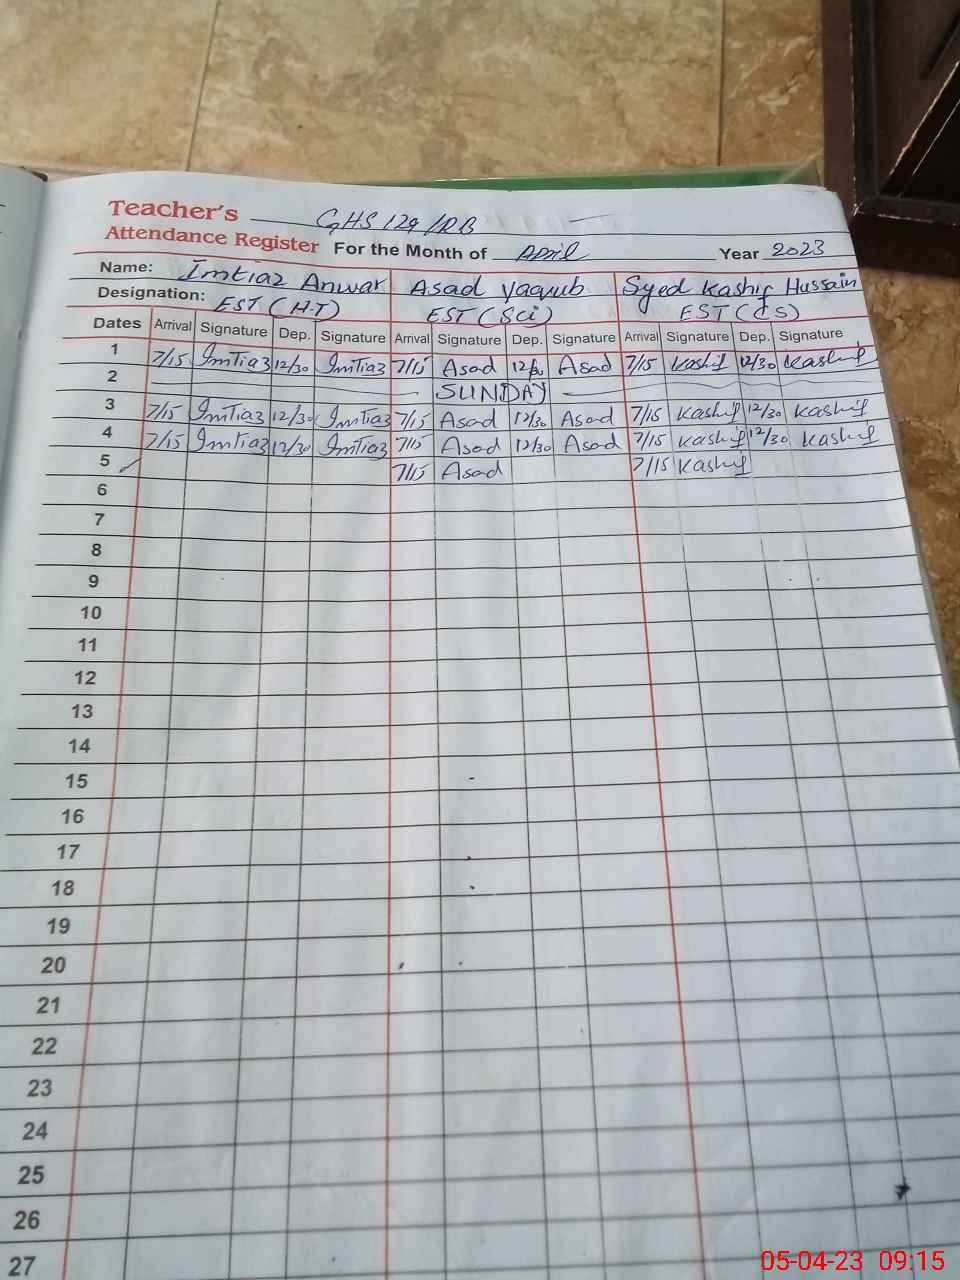 Teacher's GHS 129/RB
Attendance Register For the Month of April Year 2023
Name: Imtiaz Anwar Asad yaqub Syed Kashif Hussain
Designation: EST (H.T) EST (Sci) EST (CS)
Dates Arrival Signature Dep. Signature Arrival Signature Dep. Signature Arrival Signature Dep. Signature
1 7/15 Imtiaz 12/30 Imtiaz 7/15 Asad Asad 7/15 Kashif 12/30 Kashif
2 SUNDAY
3 7/15 Imtiaz 12/30 Imtiaz 7/15 Asad 12/30 Asad 7/15 Kashif 12/30 Kashif
4 7/15 Imtiaz 12/30 Imtiaz 7/15 Asad 12/30 Asad 7/15 Kashif 12/30 Kashif
5 7/15 Asad 7/15 Kashif
6
7
8
9
10
11
12
13
14
15
16
17
18
19
20
21
22
23
24
25
26
27
05-04-23 09:15